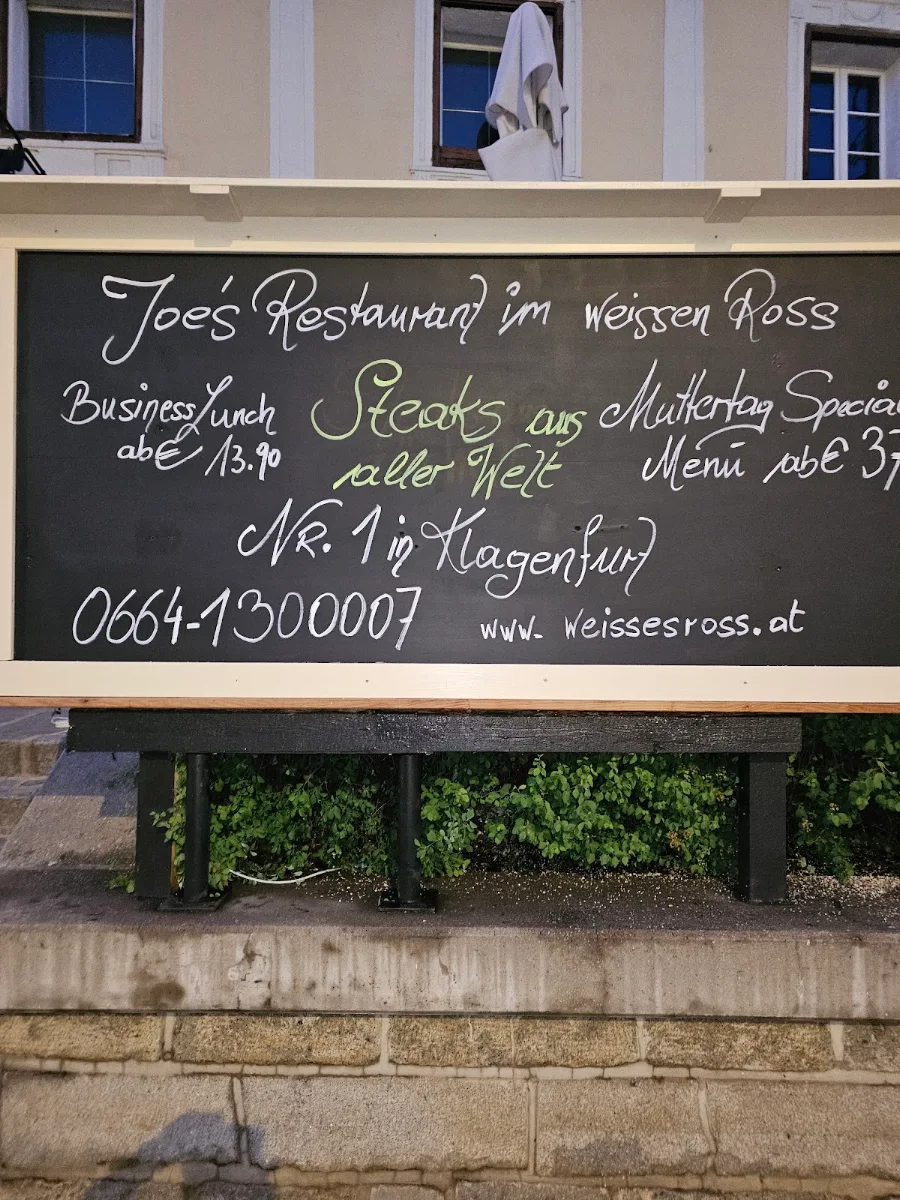 Joe's Restaurant im weissen Ross
Business Lunch
ab € 13.90
Steaks aus
aller Welt
Muttertag Special
Menü ab € 37
NR. 1 in Klagenfurt
0664-1300007
www. weissesross.at